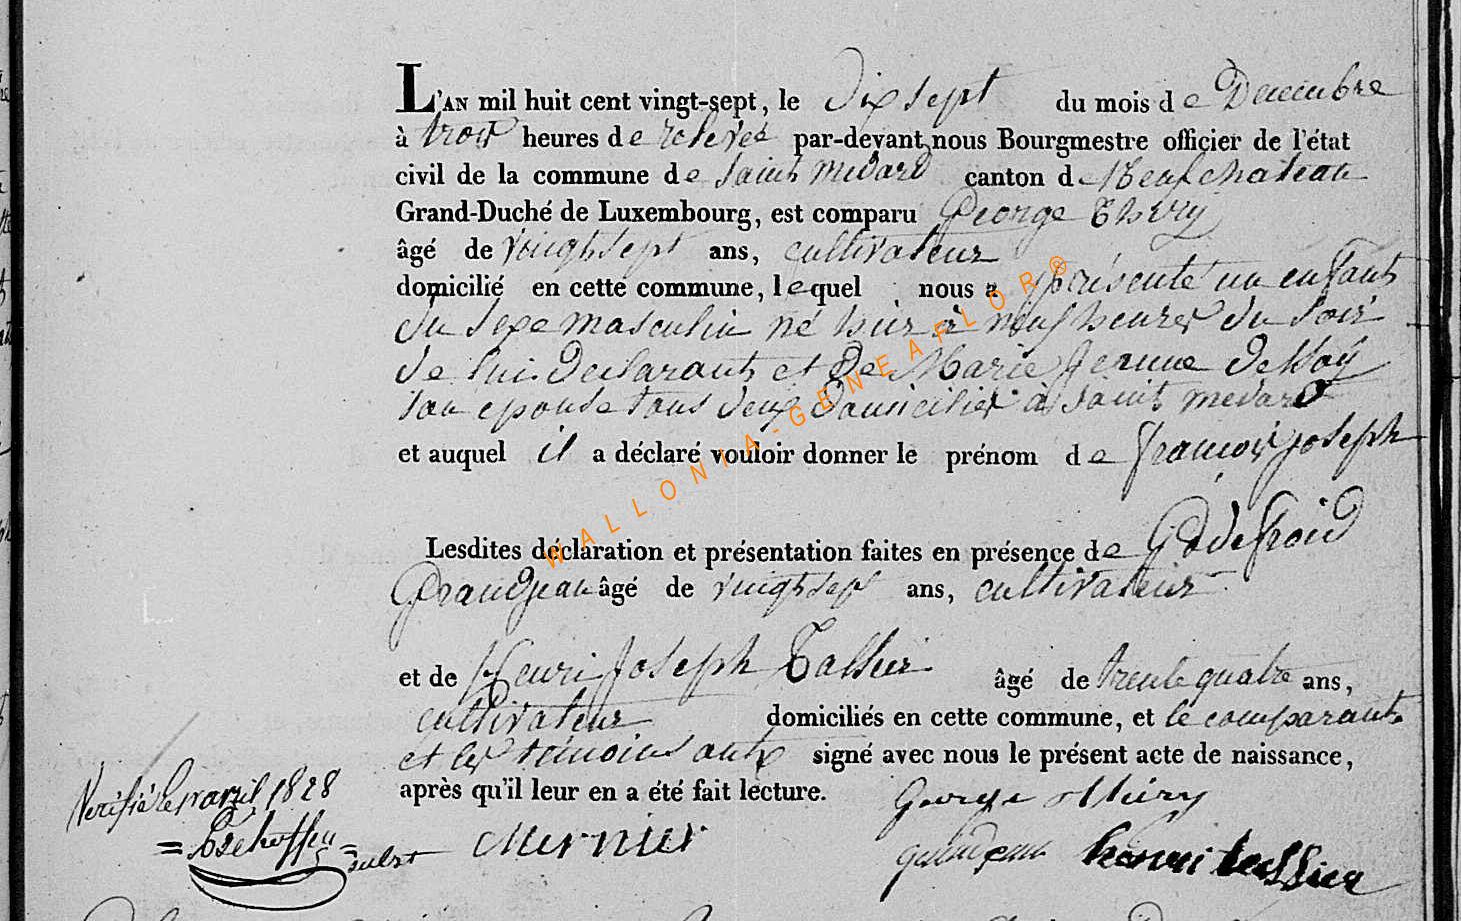 L'AN mil huit cent vingt-sept, le dix sept du mois de Decembre
à trois heures de relevée par-devant nous Bourgmestre officier de l'état
civil de la commune de Saint medard canton de Neufchateau
Grand-Duché de Luxembourg, est comparu George Thiry
âgé de vinghsept ans, cultivateur
domicilié en cette commune, lequel nous a présenté un enfant
du sexe masculin né hier à neuf heures du soir
de lui declarant et de Marie Jeanne
son epouse tous deux domiciliés à saint medard
et auquel il a déclaré vouloir donner le prénom de françois joseph
Lesdites déclaration et présentation faites en présence de Godefroid
Grandjean âgé de vinghsept ans, cultivateur
et de Henri Joseph Tassier âgé de trente quatre ans,
cultivateur domiciliés en cette commune, et le comparant
et les témoins ont signé avec nous le présent acte de naissance,
après qu'il leur en a été fait lecture.
George Thiry
Vérifié le avril 1828
Mernier
grandjean henri tassier
WALLONIA-GENEAFLOR®